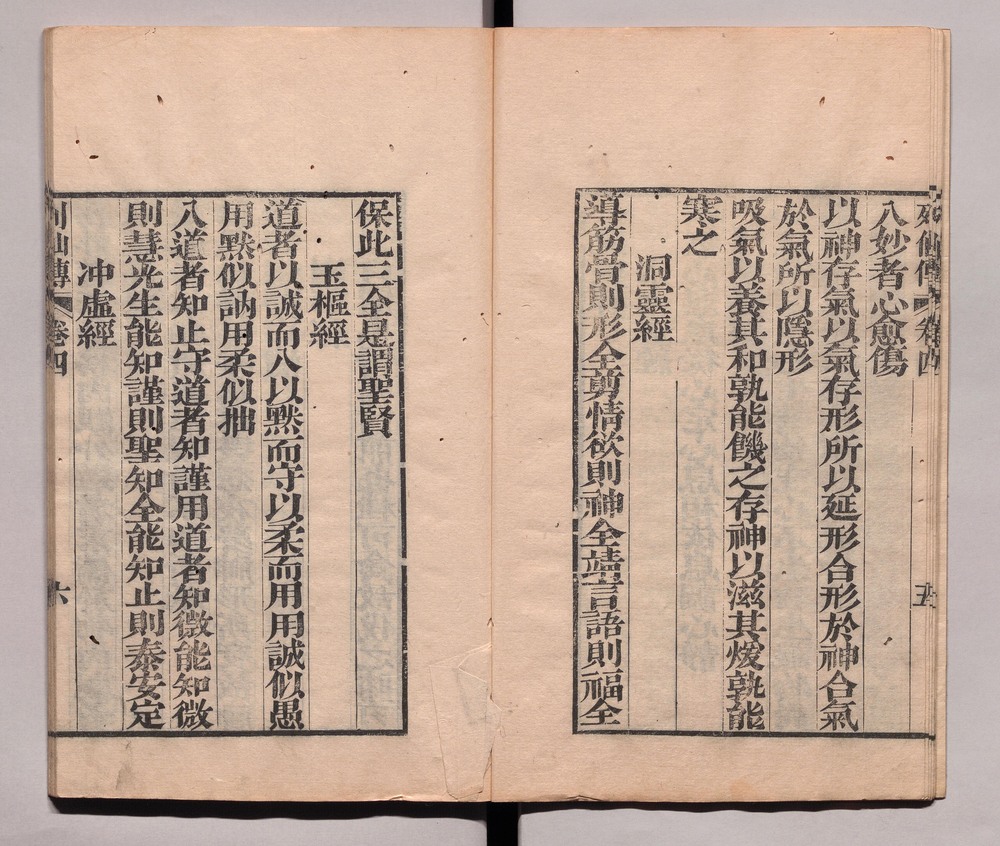 列仙傳 卷四 五
入妙者心愈傷
以神存氣以氣存形所以延形合形於神合氣
於氣所以隱形
吸氣以養其和孰能饑之存神以滋其煖孰能
寒之
洞靈經
導筋骨則形全剪情欲則神全靖言語則福全
保此三全是謂聖賢
玉樞經
道者以誠而入以黙而守以柔而用用誠似愚
用黙似訥用柔似拙
入道者知止守道者知謹用道者知微能知微
則慧光生能知謹則聖知全能知止則泰安定
冲虛經
列仙傳 卷四 六